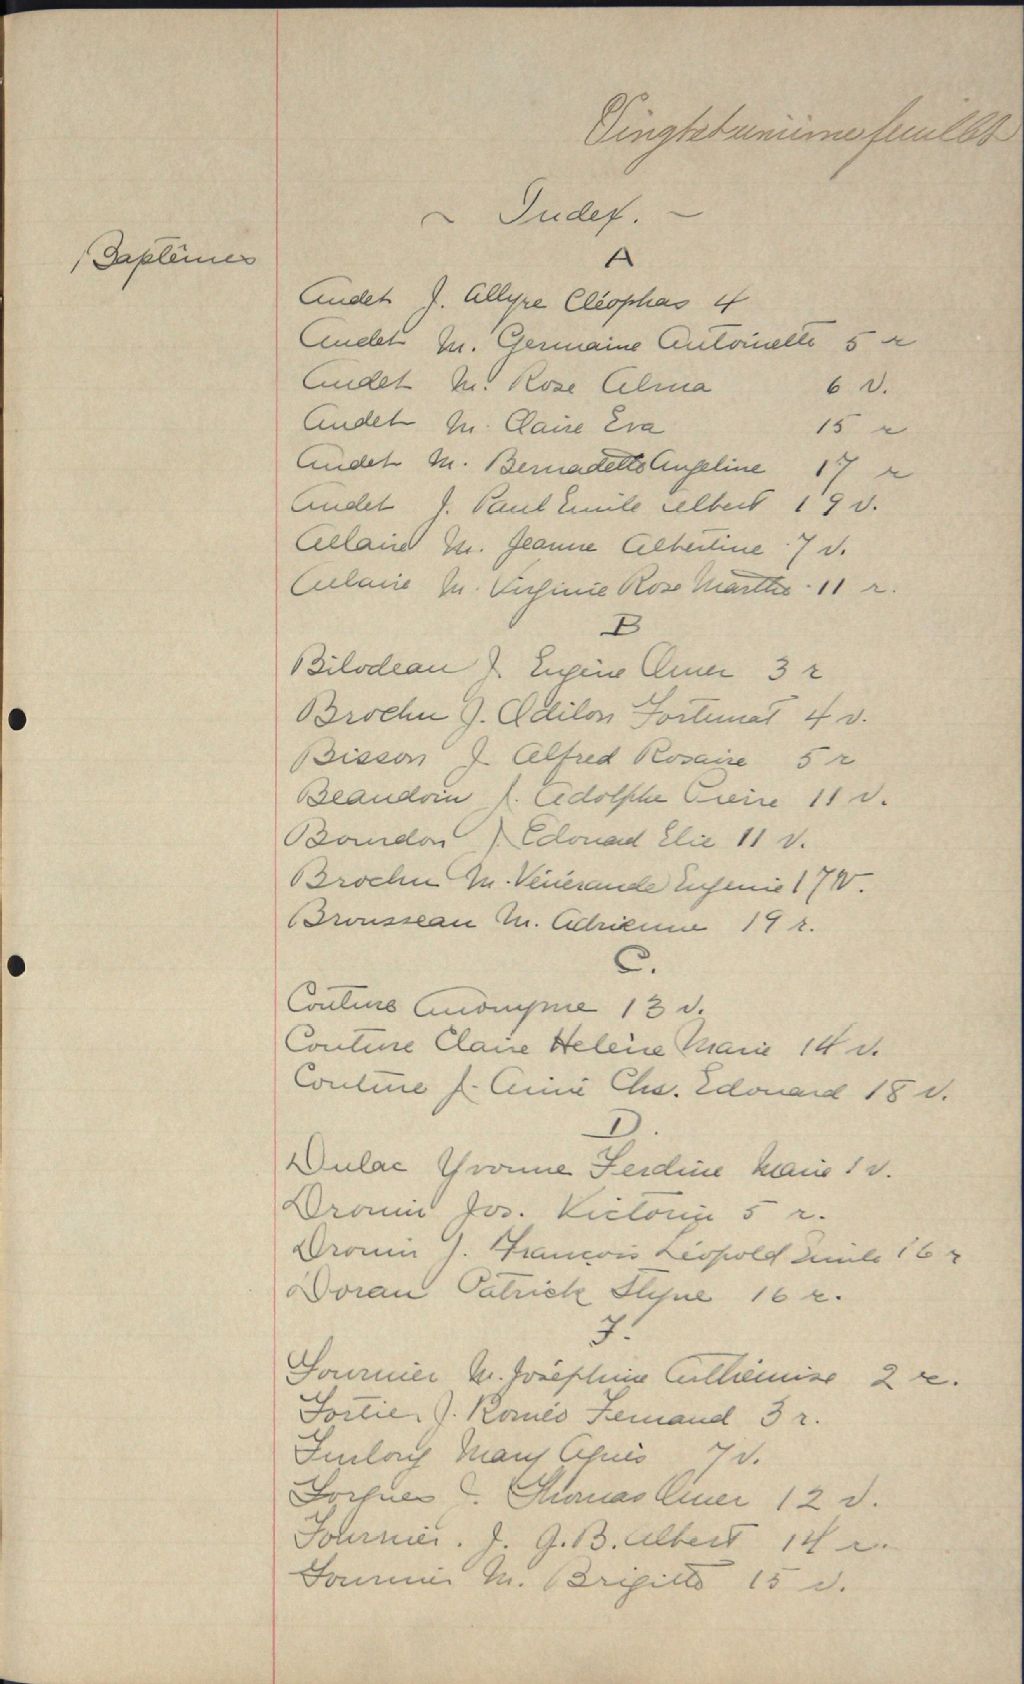 Vingt et unième feuillet
~ Index. ~
Baptêmes
A
Audet J. Allyre Cléophas 4
Audet M. Germaine Antoinette 5 r
Audet M. Rose Alma 6 v.
Audet M. Claire Eva 15 r
Audet M. Bernadette Angeline 17 r
Audet J. Paul Emile Albert 19 v.
Allaire M. Jeanne Albertine 7 v.
Allaire M. Virginie Rose Marthe 11 r.
B
Bilodeau J. Eugène Omer 3 r
Brochu J. Odilon Fortunat 4 v.
Bisson J. Alfred Rosaire 5 r
Beaudoin J. Adolphe Pierre 11 v.
Bourdon J. Edouard Elie 11 v.
Brochu M. Vénérande Eugenie 17 v.
Brousseau M. Adrienne 19 r.
C.
Couture Anonyme 13 v.
Couture Claire Helène Marie 14 v.
Couture J. Aimé Chs. Edouard 18 v.
D.
Dulac Yvonne Ferdine Marie 1 v.
Drouin Jos. Victorin 5 r.
Drouin J. François Léopold Emile 16 r
Doran Patrick Styne 16 r.
F.
Fournier M. Joséphine Arthémise 2 r.
Fortier J. Roméo Fernand 3 r.
Furlong Mary Agnès 7 v.
Forgues J. Thomas Omer 12 v.
Fournier. J. J.B. Albert 14 r.
Fournier M. Brigitte 15 v.